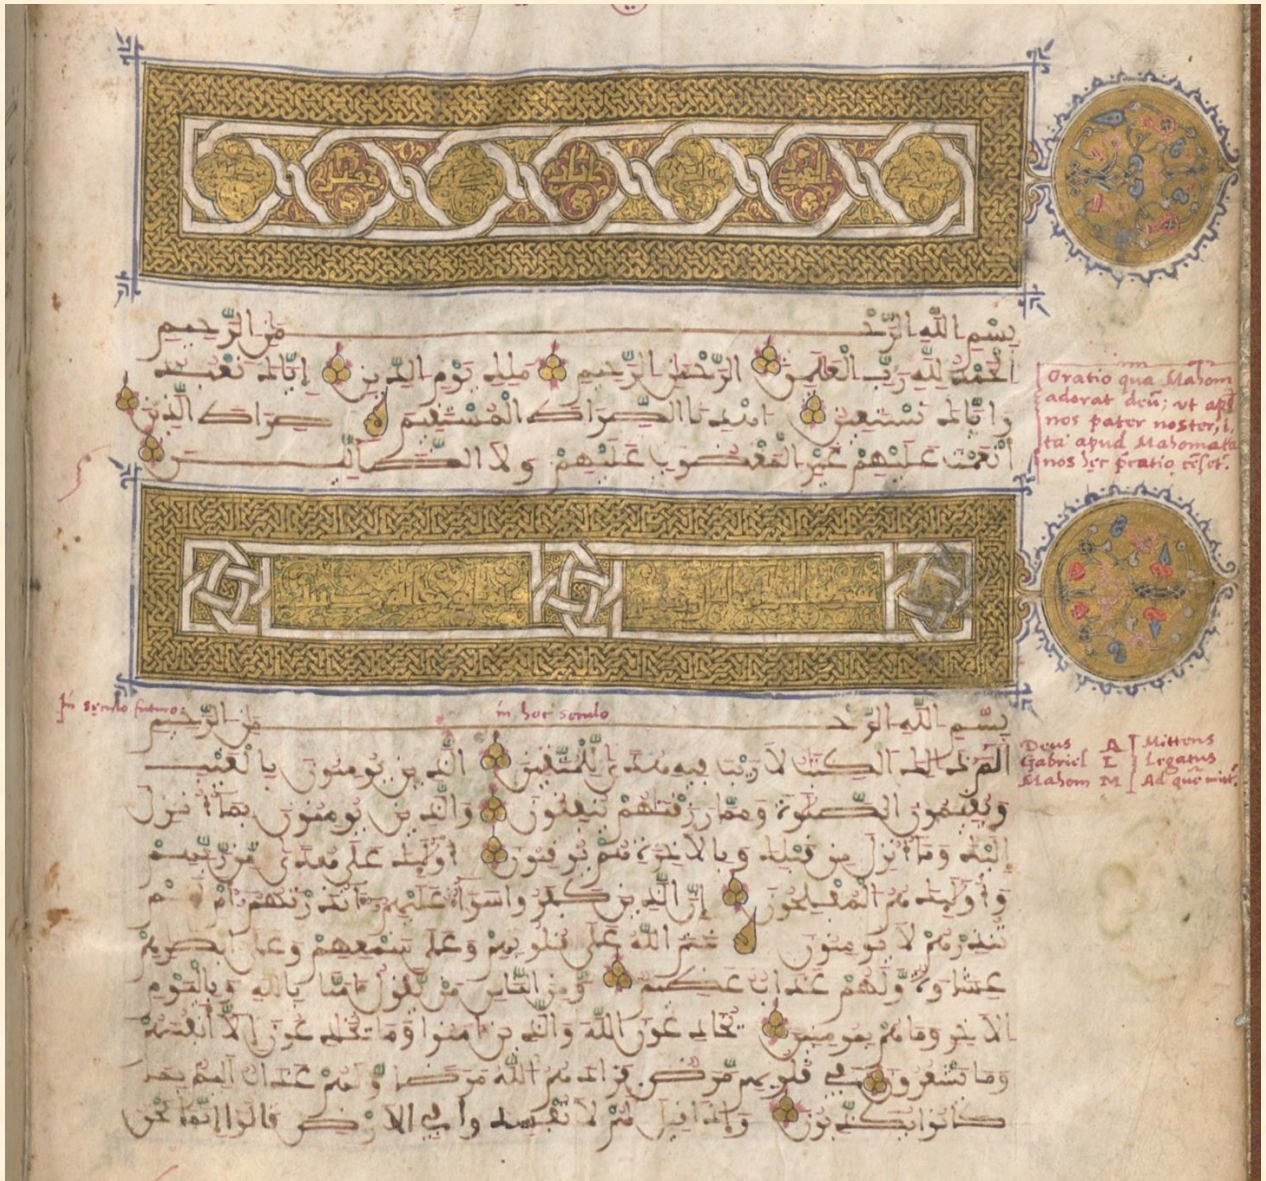 بسم الله الرحمن الرحيم
الحمد لله رب العلمين الرحمن الرحيم ملك يوم الدين إياك نعبد
وإياك نستعين اهدنا الصراط المستقيم صراط الذين
أنعمت عليهم غير المغضوب عليهم ولا الضالين
Oratio qua Mahom
adorat deū; ut apd
nos pater noster, i
ta apud Mahometa
nos hęc p̄catio cēset.
In sęculo futuro:
in hoc seculo
بسم الله الرحمن الرحيم
الم ذلك الكتب لا ريب فيه هدى للمتقين الذين يومنون بالغيب
ويقيمون الصلوة ومما رزقنهم ينفقون والذين يومنون بما أنزل
إليك وما أنزل من قبلك وبالاخرة هم يوقنون أولئك على هدى من ربهم
وأولئك هم المفلحون إن الذين كفروا سواء عليهم ءانذرتهم أم لم
تنذرهم لا يومنون ختم الله على قلوبهم وعلى سمعهم وعلى أبصرهم
غشوة ولهم عذاب عظيم ومن الناس من يقول ءامنا بالله وباليوم
الاخر وما هم بمومنين يخدعون الله والذين ءامنوا وما يخدعون إلا أنفسهم
وما يشعرون في قلوبهم مرض فزادهم الله مرضا ولهم عذاب أليم بما
كانوا يكذبون وإذا قيل لهم لا تفسدوا في الارض قالوا إنما نحن
Deus A Mittens
Gabriel L legatus
Mahom M Ad quē mitt.